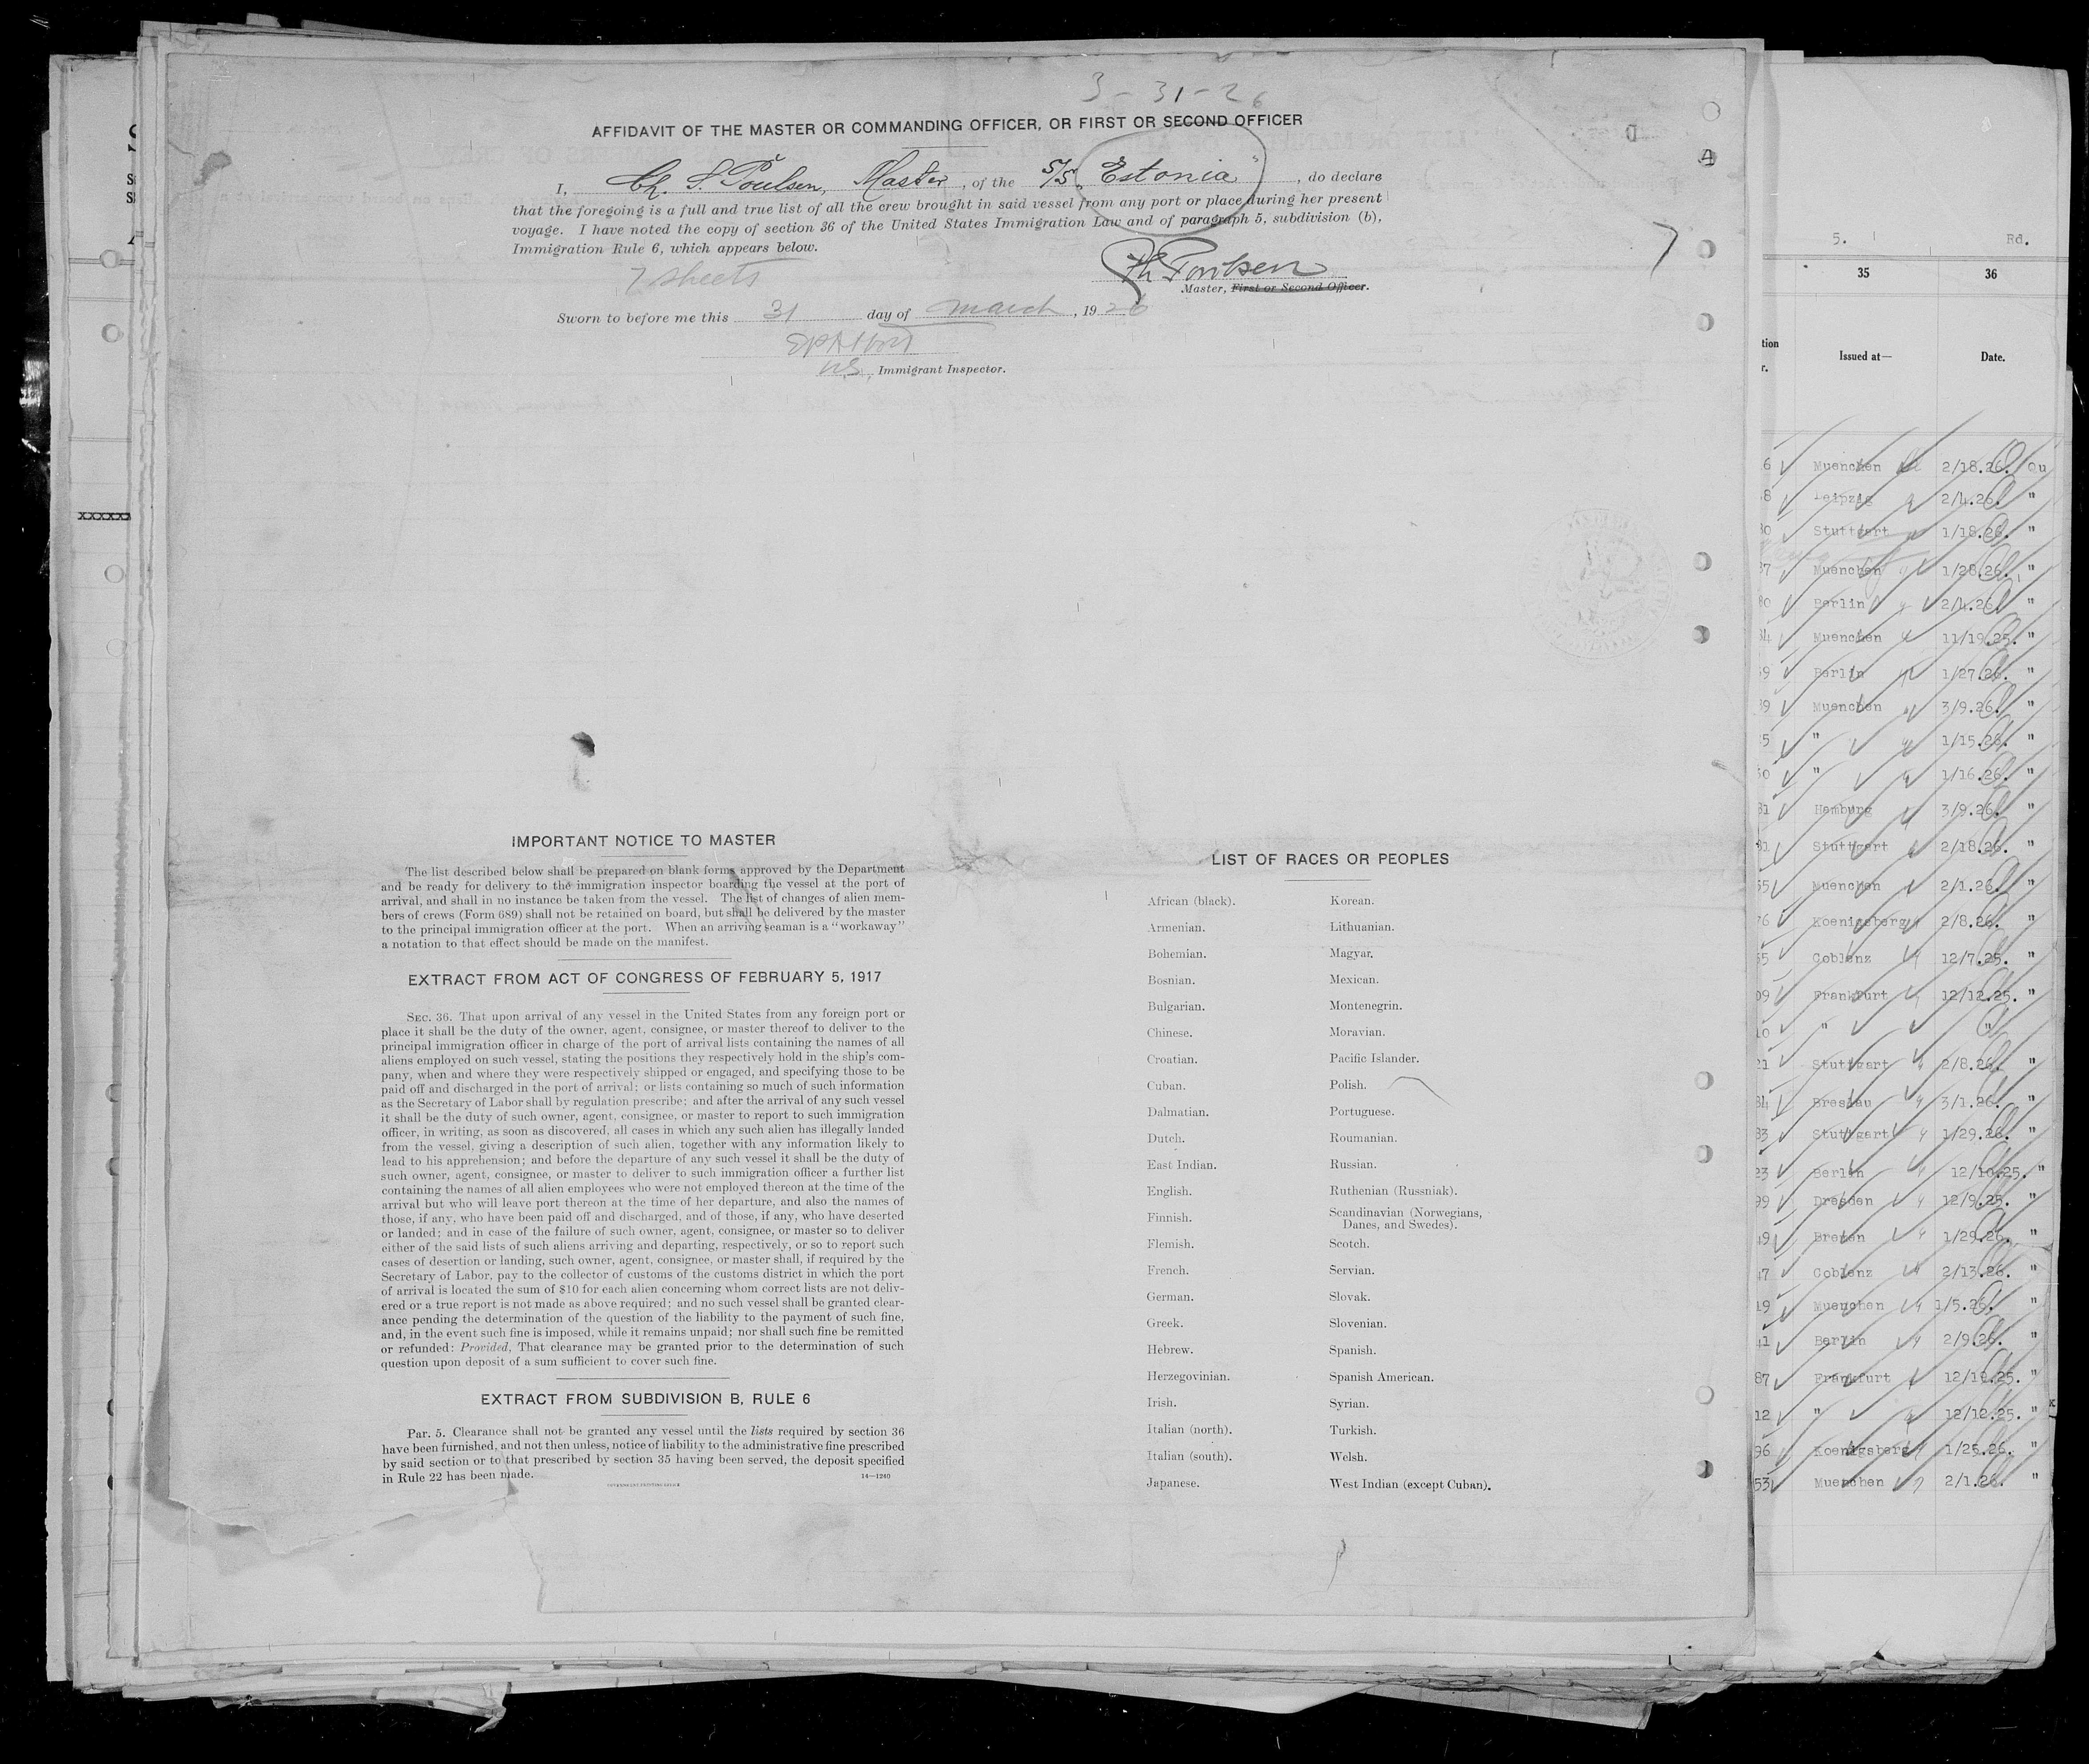 3-31-26
AFFIDAVIT OF THE MASTER OR COMMANDING OFFICER, OR FIRST OR SECOND OFFICER
I, Ch. S. Poulsen, Master, of the S/S. "Estonia", do declare
that the foregoing is a full and true list of all the crew brought in said vessel from any port or place during her present
voyage. I have noted the copy of section 36 of the United States Immigration Law and of paragraph 5, subdivision (b),
Immigration Rule 6, which appears below.
7
7 sheets
Poulsen
Master, First or Second Officer.
Sworn to before me this 31 day of march, 1926
U.S. Immigrant Inspector.
IMPORTANT NOTICE TO MASTER
The list described below shall be prepared on blank forms approved by the Department
and be ready for delivery to the immigration inspector boarding the vessel at the port of
arrival, and shall in no instance be taken from the vessel. The list of changes of alien mem-
bers of crews (Form 689) shall not be retained on board, but shall be delivered by the master
to the principal immigration officer at the port. When an arriving seaman is a "workaway"
a notation to that effect should be made on the manifest.
EXTRACT FROM ACT OF CONGRESS OF FEBRUARY 5, 1917
SEC. 36. That upon arrival of any vessel in the United States from any foreign port or
place it shall be the duty of the owner, agent, consignee, or master thereof to deliver to the
principal immigration officer in charge of the port of arrival lists containing the names of all
aliens employed on such vessel, stating the positions they respectively hold in the ship's com-
pany, when and where they were respectively shipped or engaged, and specifying those to be
paid off and discharged in the port of arrival; or lists containing so much of such information
as the Secretary of Labor shall by regulation prescribe; and after the arrival of any such vessel
it shall be the duty of such owner, agent, consignee, or master to report to such immigration
officer, in writing, as soon as discovered, all cases in which any such alien has illegally landed
from the vessel, giving a description of such alien, together with any information likely to
lead to his apprehension; and before the departure of any such vessel it shall be the duty of
such owner, agent, consignee, or master to deliver to such immigration officer a further list
containing the names of all alien employees who were not employed thereon at the time of the
arrival but who will leave port thereon at the time of her departure, and also the names of
those, if any, who have been paid off and discharged, and of those, if any, who have deserted
or landed; and in case of the failure of such owner, agent, consignee, or master so to deliver
either of the said lists of such aliens arriving and departing, respectively, or so to report such
cases of desertion or landing, such owner, agent, consignee, or master shall, if required by the
Secretary of Labor, pay to the collector of customs of the customs district in which the port
of arrival is located the sum of $10 for each alien concerning whom correct lists are not deliv-
ered or a true report is not made as above required; and no such vessel shall be granted clear-
ance pending the determination of the question of the liability to the payment of such fine,
and, in the event such fine is imposed, while it remains unpaid; nor shall such fine be remitted
or refunded: Provided, That clearance may be granted prior to the determination of such
question upon deposit of a sum sufficient to cover such fine.
EXTRACT FROM SUBDIVISION B, RULE 6
Par. 5. Clearance shall not be granted any vessel until the lists required by section 36
have been furnished, and not then unless, notice of liability to the administrative fine prescribed
by said section or to that prescribed by section 35 having been served, the deposit specified
in Rule 22 has been made.
14—1240
GOVERNMENT PRINTING OFFICE
LIST OF RACES OR PEOPLES
African (black).
Armenian.
Bohemian.
Bosnian.
Bulgarian.
Chinese.
Croatian.
Cuban.
Dalmatian.
Dutch.
East Indian.
English.
Finnish.
Flemish.
French.
German.
Greek.
Hebrew.
Herzegovinian.
Irish.
Italian (north).
Italian (south).
Japanese.
Korean.
Lithuanian.
Magyar.
Mexican.
Montenegrin.
Moravian.
Pacific Islander.
Polish.
Portuguese.
Roumanian.
Russian.
Ruthenian (Russniak).
Scandinavian (Norwegians,
Danes, and Swedes).
Scotch.
Servian.
Slovak.
Slovenian.
Spanish.
Spanish American.
Syrian.
Turkish.
Welsh.
West Indian (except Cuban).
5. Rd.
35 36
Issued at— Date.
6 Muenchen 2/18.26. Qu
8 Leipzig 2/4.26. "
30 Stuttgart 1/18.26. "
37 Muenchen 1/28.26. "
80 Berlin 2/4.26. "
34 Muenchen 11/19.25. "
59 Berlin 1/27.26. "
39 Muenchen 3/9.26. "
5 " 1/15.26. "
50 " 1/16.26. "
31 Hamburg 3/9.26. "
31 Stuttgart 2/18.26. "
55 Muenchen 2/1.26. "
76 Koenigsberg 2/8.26. "
55 Coblenz 12/7.25. "
09 Frankfurt 12/12.25. "
10 " "
21 Stuttgart 2/8.26. "
84 Breslau 3/1.26. "
83 Stuttgart 1/29.26. "
23 Berlin 12/10.25. "
99 Dresden 12/9.25. "
49 Bremen 1/29.26. "
47 Coblenz 2/13.26. "
19 Muenchen 1/5.26. "
41 Berlin 2/9.26. "
87 Frankfurt 12/18.25. "
12 " 12/12.25. "
96 Koenigsberg 1/25.26. "
53 Muenchen 2/1.26. "